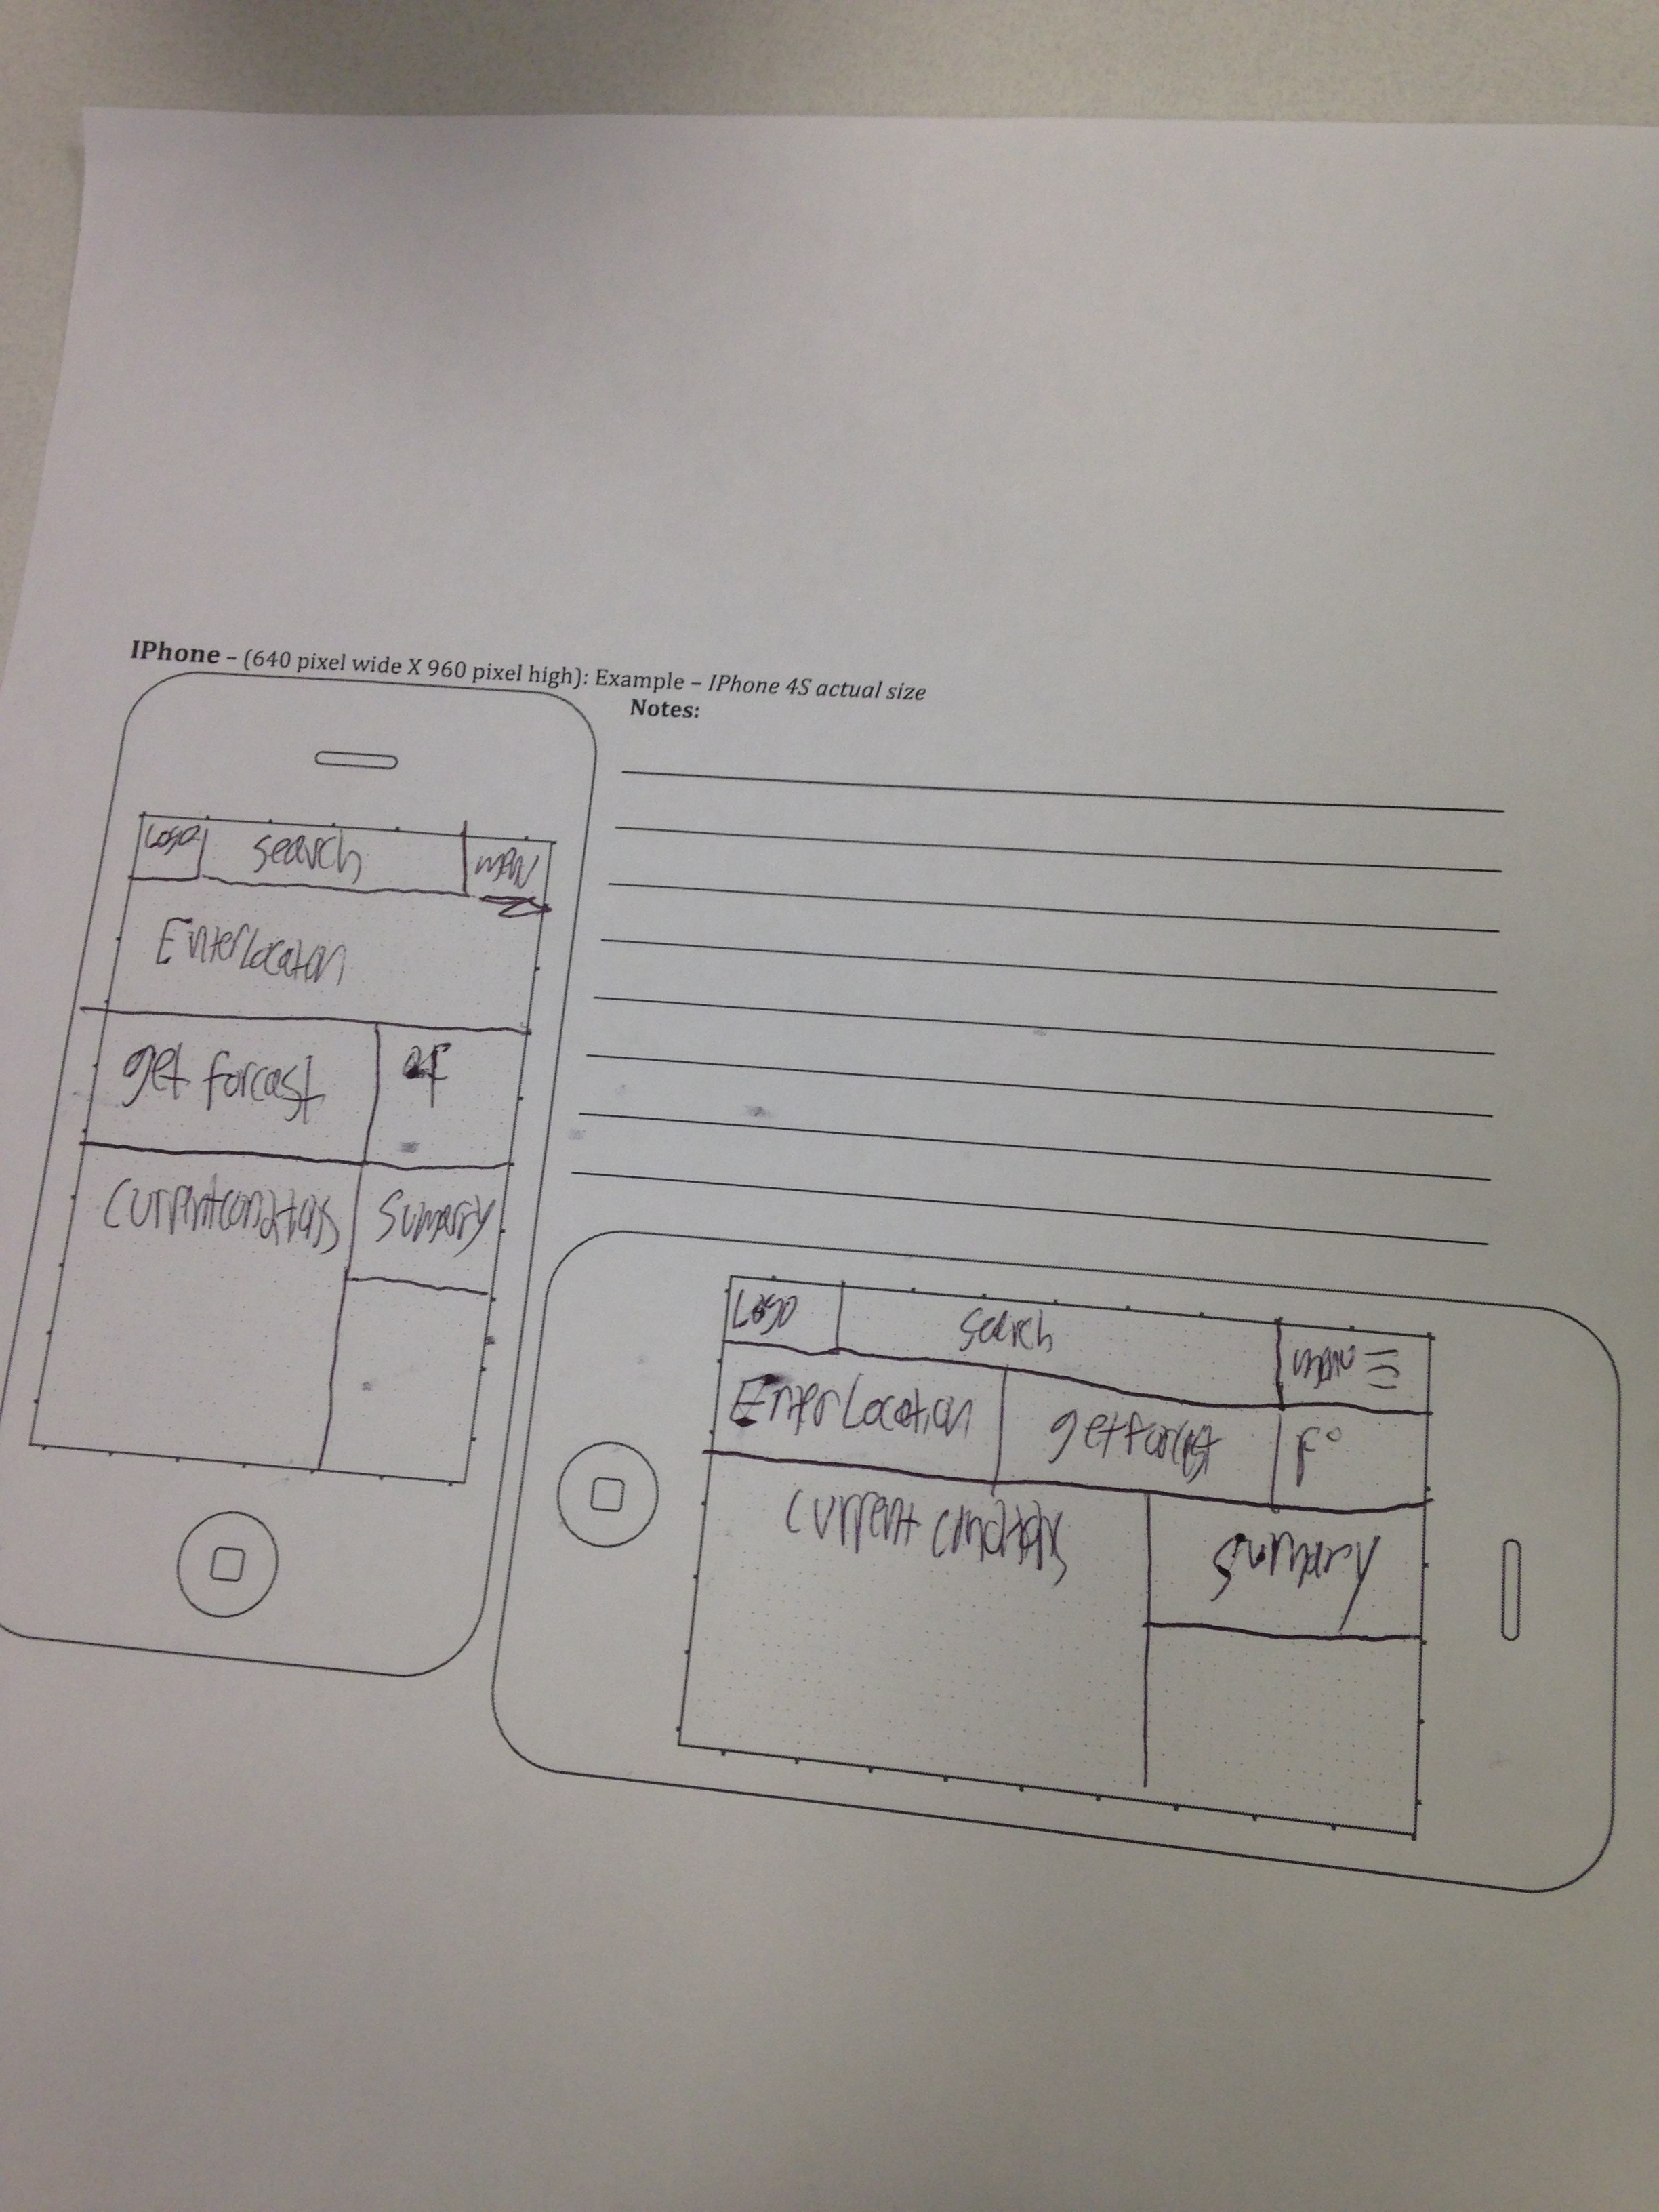 IPhone – (640 pixel wide X 960 pixel high): Example – IPhone 4S actual size
Notes:
Logo search menu
Enter Locaton
get forcast °F
Current conditons Sumarry
Logo search menu
Enter Location get forcast F°
Current conditons Sumarry